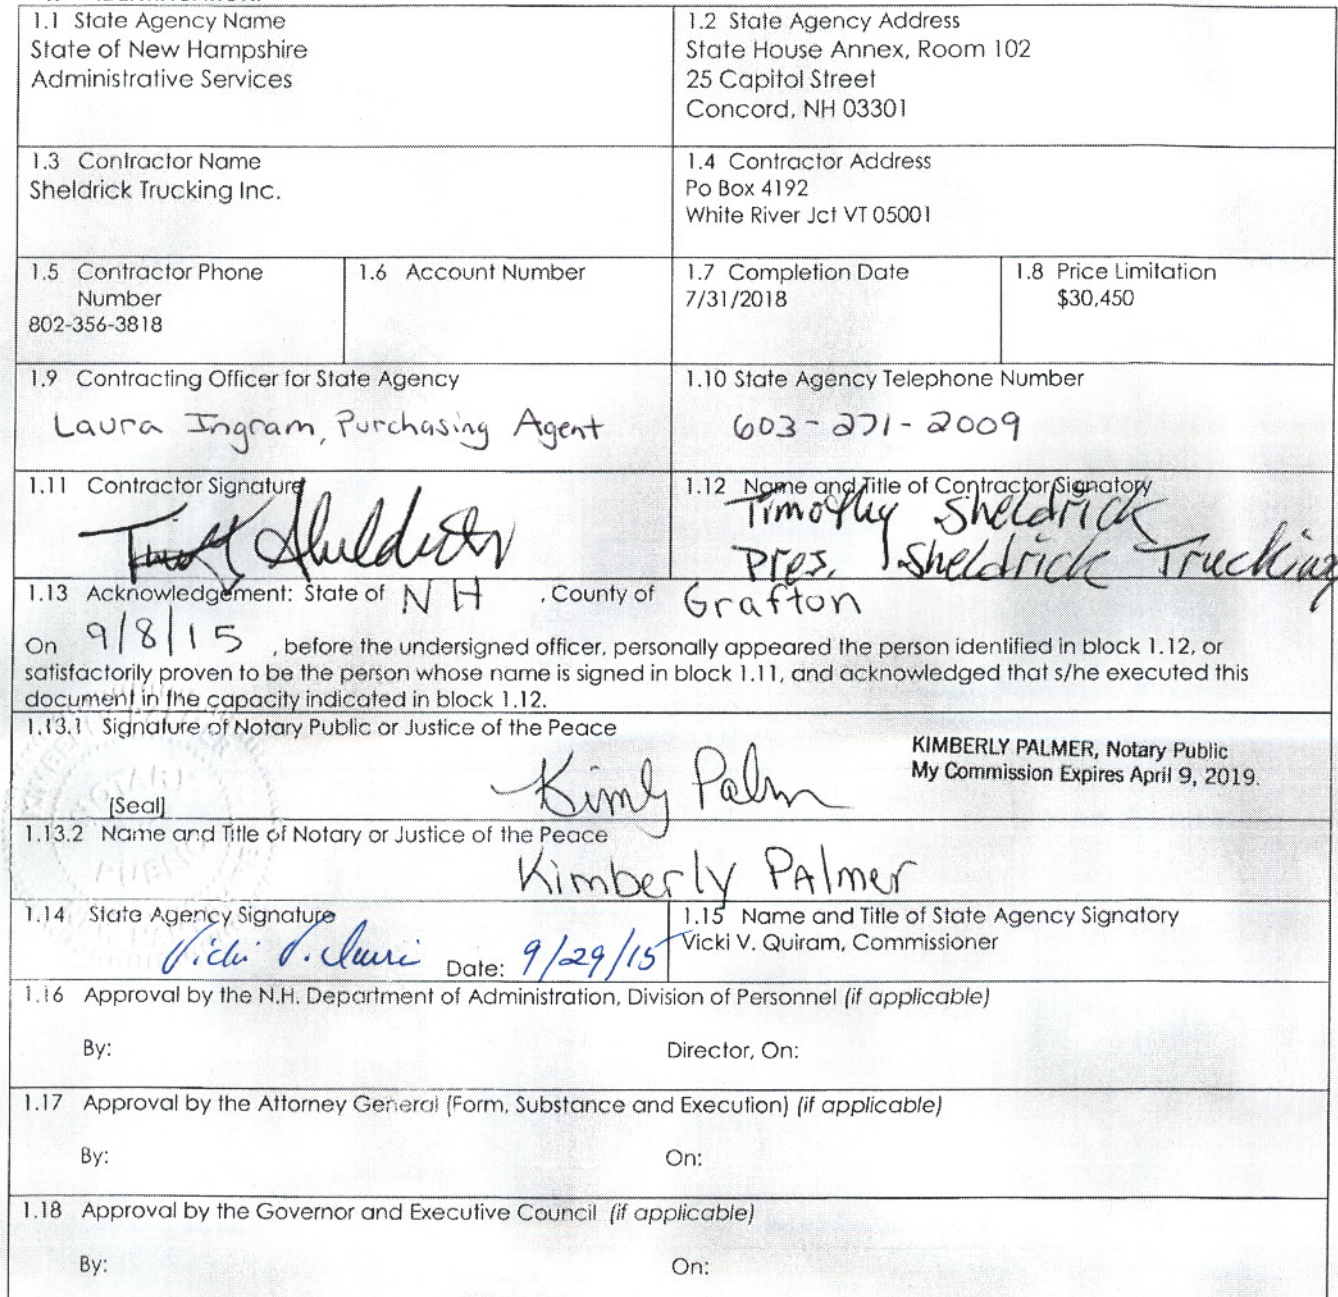 1.1 State Agency Name
State of New Hampshire
Administrative Services
1.2 State Agency Address
State House Annex, Room 102
25 Capitol Street
Concord, NH 03301
1.3 Contractor Name
Sheldrick Trucking Inc.
1.4 Contractor Address
Po Box 4192
White River Jct VT 05001
1.5 Contractor Phone
Number
802-356-3818
1.6 Account Number
1.7 Completion Date
7/31/2018
1.8 Price Limitation
$30,450
1.9 Contracting Officer for State Agency
Laura Ingram, Purchasing Agent
1.10 State Agency Telephone Number
603-271-2009
1.11 Contractor Signature
1.12 Name and Title of Contractor Signatory
Timothy Sheldrick
Pres. Sheldrick Trucking
1.13 Acknowledgement: State of NH , County of Grafton
On 9/8/15 , before the undersigned officer, personally appeared the person identified in block 1.12, or
satisfactorily proven to be the person whose name is signed in block 1.11, and acknowledged that s/he executed this
document in the capacity indicated in block 1.12.
1.13.1 Signature of Notary Public or Justice of the Peace
KIMBERLY PALMER, Notary Public
My Commission Expires April 9, 2019.
[Seal]
1.13.2 Name and Title of Notary or Justice of the Peace
Kimberly Palmer
1.14 State Agency Signature
Date: 9/29/15
1.15 Name and Title of State Agency Signatory
Vicki V. Quiram, Commissioner
1.16 Approval by the N.H. Department of Administration, Division of Personnel (if applicable)
By: Director, On:
1.17 Approval by the Attorney General (Form, Substance and Execution) (if applicable)
By: On:
1.18 Approval by the Governor and Executive Council (if applicable)
By: On: